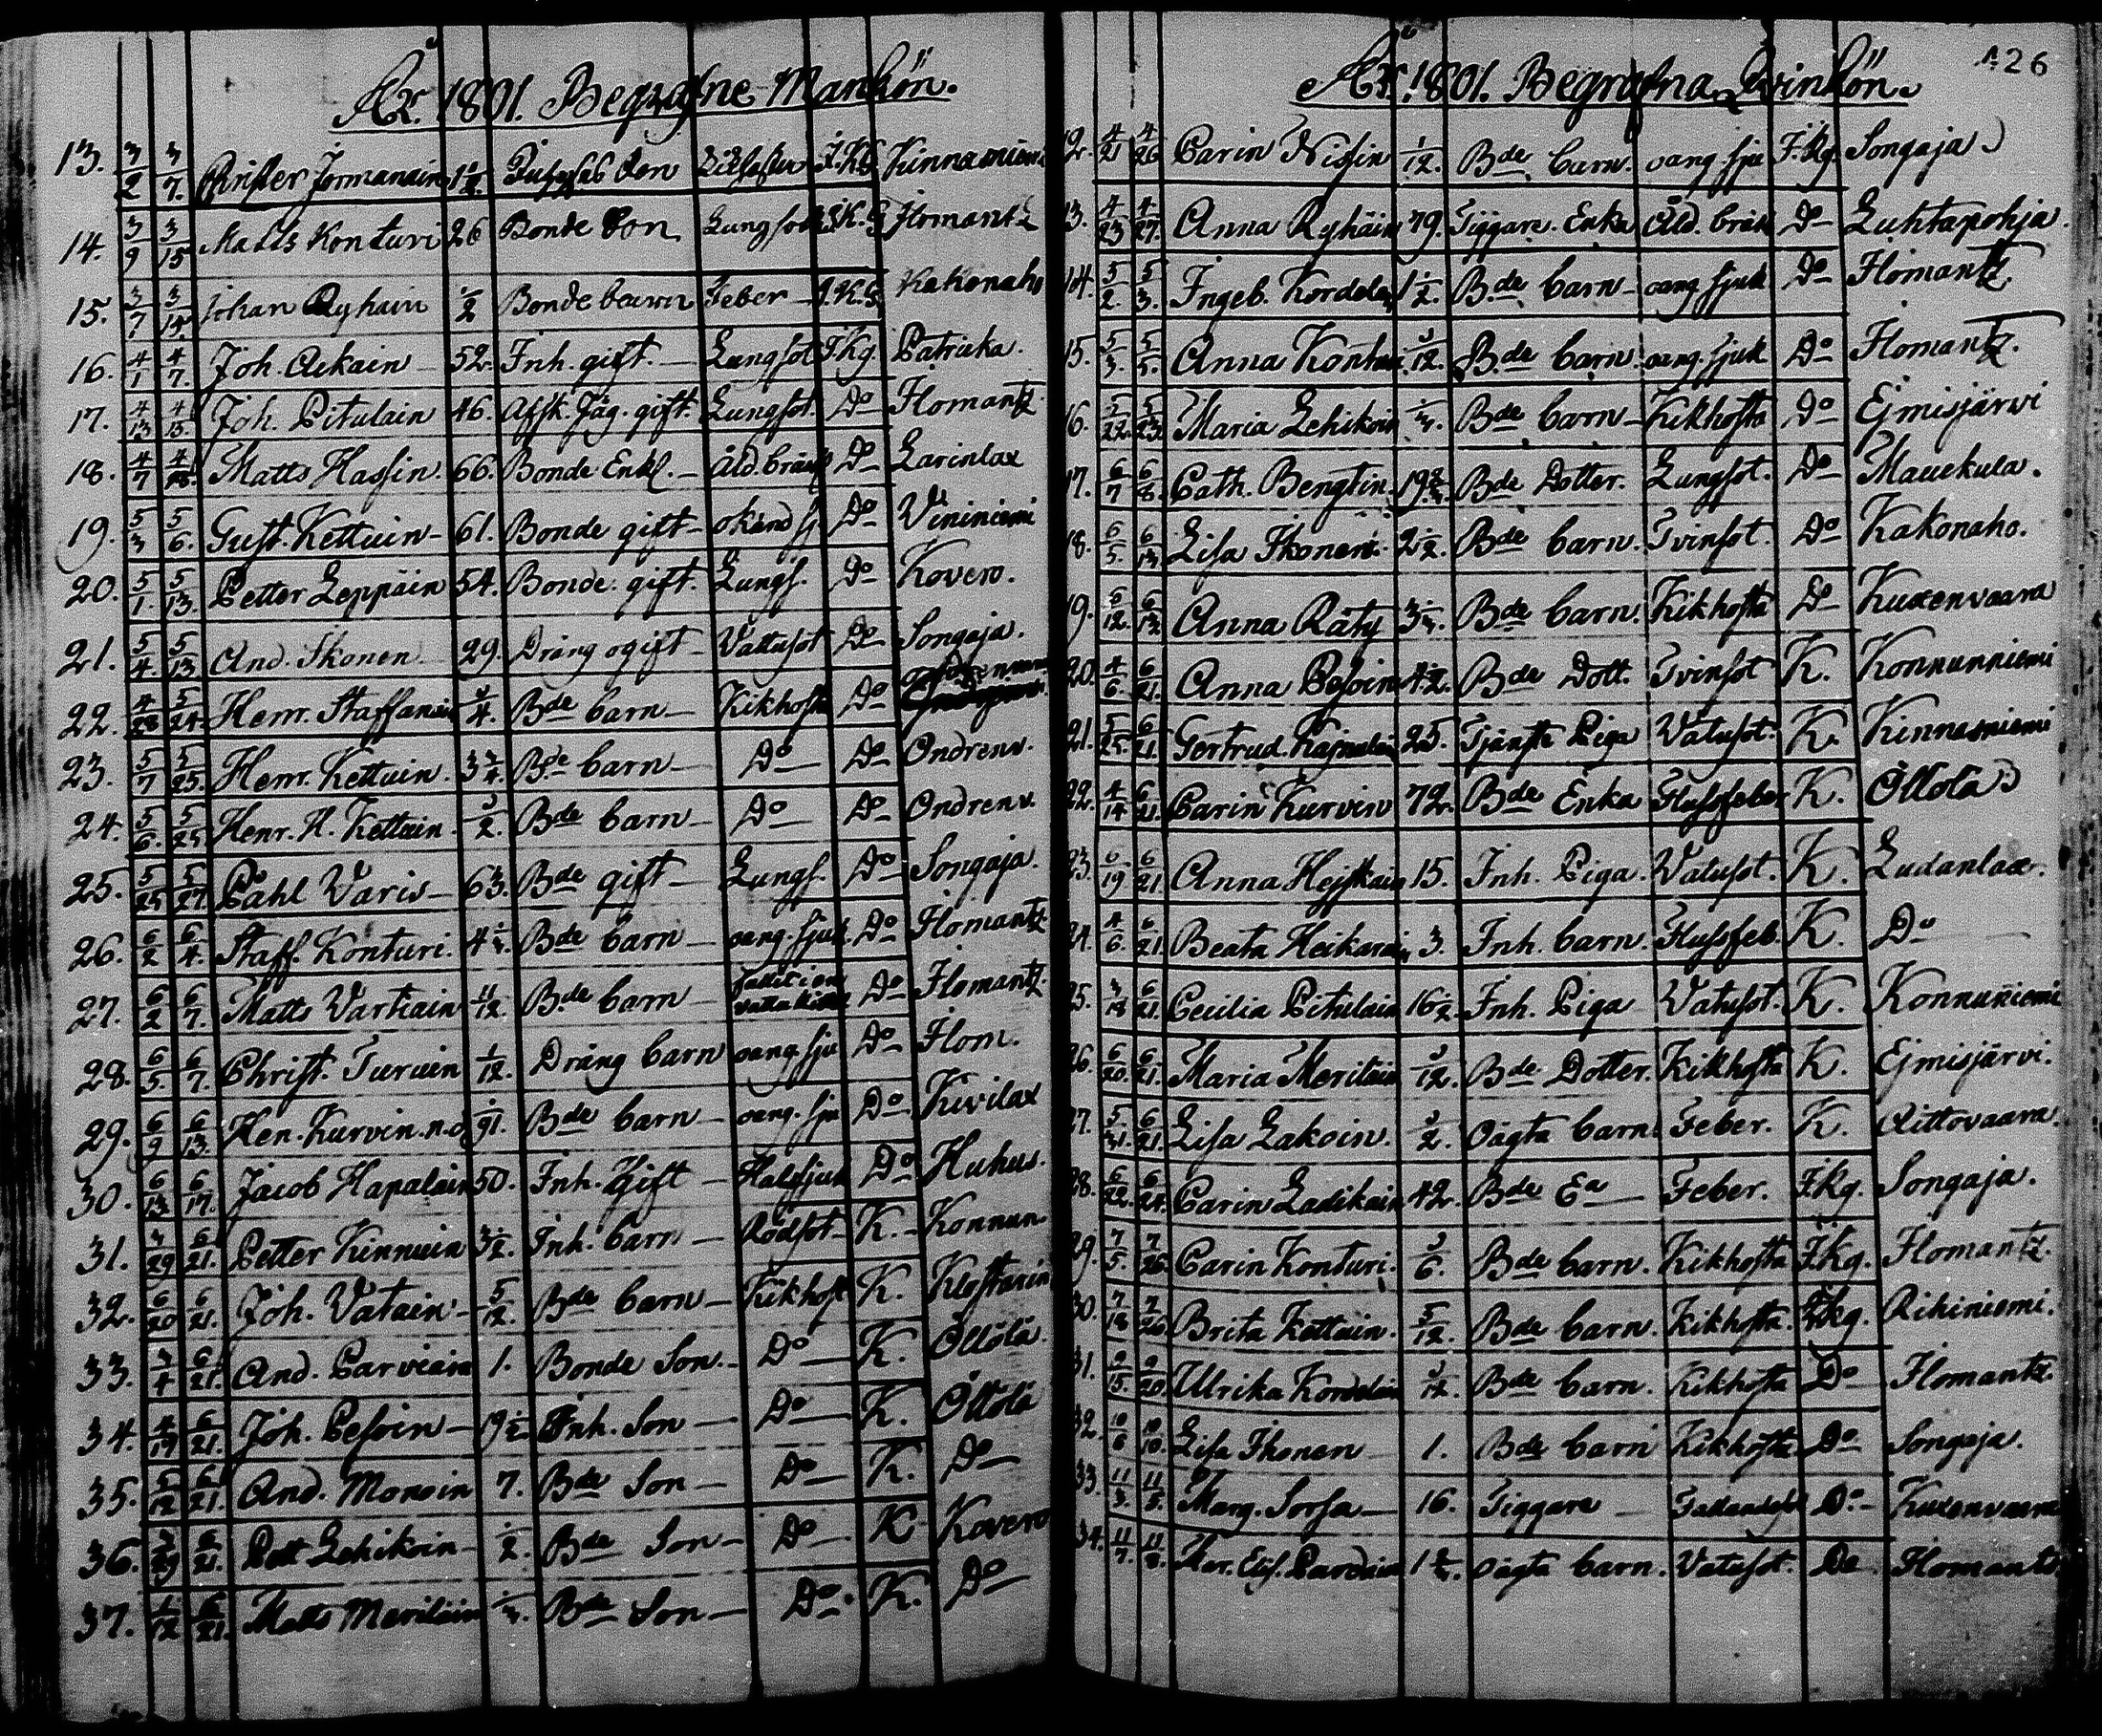 År 1801. Begrafne Mankön.
13. 3/2 3/7. Jormanain 1 1/2. Son Kinnasniemi
14. 3/9 3/15 Matts Konturi 26 Bonde Son Lungsot I.K.G Ilomantz
15. 3/7 3/15 Johan Ryhäin 1/2 Bonde barn Feber I.K.G. Kakonaho
16. 4/1 4/7. Joh. Ackain 52. Inh. gift. Lungsot I.Kg. Patricka.
17. 4/13 4/15. Joh. Pitulain 46. Afsk. Jäg. gift. Lungsot. Do Ilomantz.
18. 4/7 4/18. Matts Hassin. 66. Bonde Enkl. Åld. bräck Do Larinlax
19. 5/3 5/6. Gust. Kettuin 61. Bonde gift okänd sj Do Vininiemi
20. 5/1. 5/13. Petter Leppäin 54. Bonde. gift. Lungs. Do Kovero.
21. 5/4. 5/13 And. Ikonen 29. Dräng ogift Vattusot Do Songaja.
22. 4/28 5/24 Henr. Staffanain 3/4. Bde barn Kikhosta Do
23. 5/7 5/25. Henr. Kettuin. 3 3/4. Bde barn Do Do Ondrenv.
24. 5/6. 5/25 Henr. H. Kettuin. 1/2. Bde barn Do Do Ondrenv.
25. 5/25 5/27. Påhl Varis 63. Bde gift Lungs. Do Songaja.
26. 6/2 6/4. Staff. Konturi. 4 1/4. Bde barn oang. sjuk. Do Ilomantz.
27. 6/2 6/7. Matts Vartiain 11/12. Bde barn Do Ilomantz.
28. 6/5. 6/7. Christ. Turuin 1/12. Dräng barn oang. sju Do Ilom.
29. 6/9 6/13. Hen. Kurvin. n.d. Bde barn oang. sju Do Kivilax
30. 6/13 6/17. Jacob Hapalain 50. Inh. Gift Halssjuk Do Huhus.
31. 3/29 6/21. Petter Kinnuin 3 1/2. Inh. barn Rödsot K. Konnun.
32. 6/20 6/21. Joh. Vatain 5/12. Bde barn Kikhost K.
33. 3/4 6/21. And. Parviain 1. Bonde Son. Do K. Öllölä
34. 4/19 6/21. Joh. Pesoin 9 1/2 Inh. Son Do K. Öllölä
35. 5/12 6/21. And. Monoin 7. Bde Son Do K. Do
36. 3/29 6/21. Pett Lehikoin 1/2. Bde Son Do K Kovero
37. 1/12 6/21. Matts Meriläin 1/4. Bde Son Do. K. Do
126
År 1801. Begrafna Qvinkön.
12. 4/21 4/26 Carin Nissin 1/12. Bde barn. oang sju I.kg. Songaja
13. 4/23 4/27. Anna Ryhäin 79. Tiggare. Enka Åld. bräk Do Luhtapohja.
14. 5/2 5/3. Ingeb. Kordelai 1 1/2. Bde barn oang sjuk Do Ilomantz.
15. 5/3. 5/5. Anna Kontu 3/12. Bde barn. oang. sjuk Do Ilomantz.
16. 5/22. 5/23. Maria Lehikoin 1/4. Bde barn Kikhosta Do Ejmisjärvi
17. 6/7 6/8. Cath. Bengtin. 19 3/4. Bde Dotter. Lungsot. Do Mauekula.
18. 6/5. 6/13 Lisa Ikonen. 2 1/2. Bde barn. Tvinsot. Do Kakonaho.
19. 6/12. 6/13. Anna Räty 3 1/4. Bde barn. Kikhosta Do Kuxenvaara
20. 4/6. 6/21. Anna Pesoin 4 1/2. Bde Dott. Tvinsot K. Konnunniemi
21. 5/25. 6/21. Gertrud. Kajnulain 25. Tjänste Piga Vatusot. K. Kinnasniemi
22. 4/14 6/21. Carin Kurvin 72. Bde Enka Flussfeber K. Öllölä
23. 6/19 6/21 Anna Hejskain 15. Inh. Piga. Vatusot. K. Ludanlax.
24. 4/6. 6/21. Beata Heikarain 3. Inh. barn. Flussfeb. K. Do
25. 3/18 6/21. Cecilia Pitulain 16 1/2. Inh. Piga Vatusot. K. Konnuniemi
26. 6/20. 6/21. Maria Meriläin 3/12. Bde Dotter. Kikhosta K. Ejmisjärvi.
27. 5/31. 6/21. Lisa Lakoin. 1/2. Oägta barn. Feber. K. Rittovaara.
28. 6/22. 6/24. Carin Ladikain 42. Bde Ea Feber. I.kg. Songaja.
29. 7/5. 7/26. Carin Konturi. 3/6. Bde barn. Kikhosta I.kg. Ilomantz.
30. 7/18 7/26 Brita Kettuin. 5/12. Bde barn. Kikhosta. I.kg. Rihiniemi.
31. 9/15. 9/20. Ulrika Kordelain 3/12. Bde barn. Kikhosta Do Ilomantz.
32. 10/6 10/10. Lisa Ikonen 1. Bde barn Kikhosta Do Songaja.
33. 11/3. 11/5. Marg. Sorsa 16. Tiggare Do Kuxenvaara
34. 11/7. 11/8. 1 3/4. oägta barn. Vatusot. Do Ilomants.